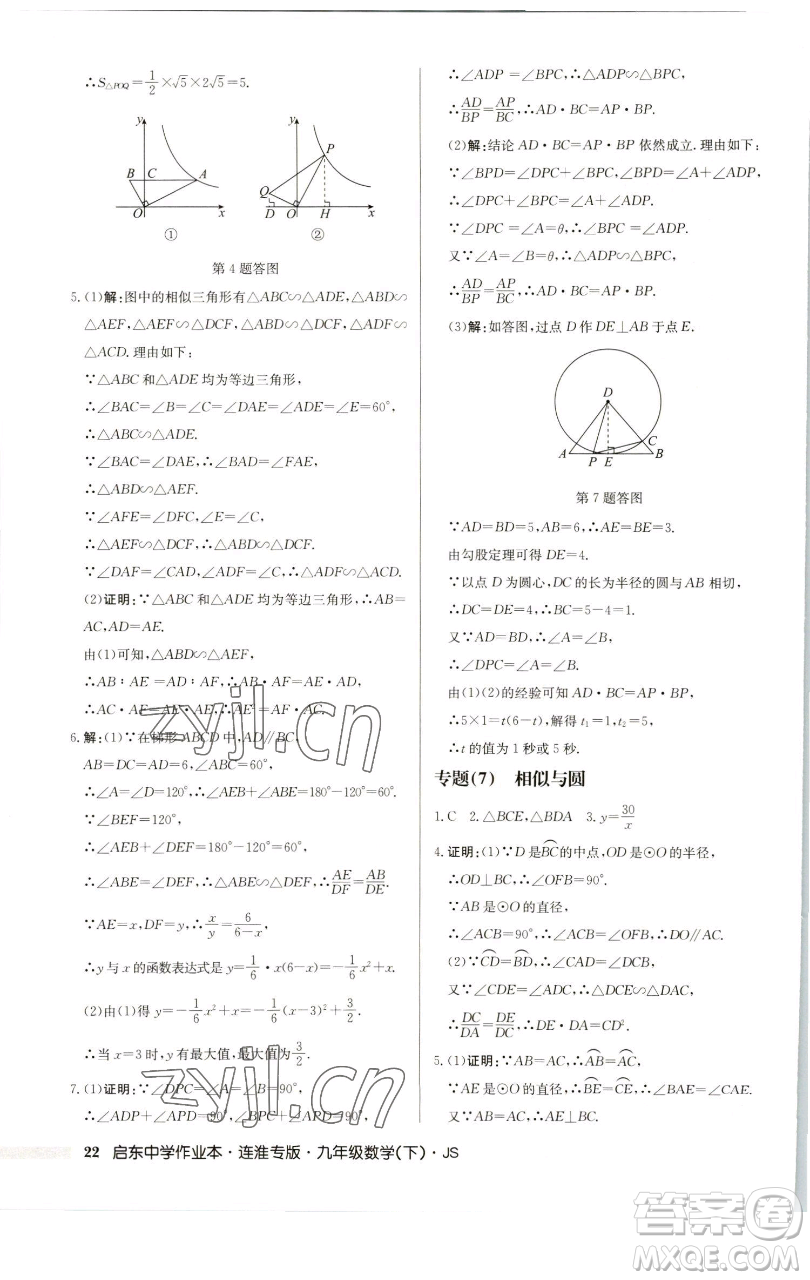 ∴S△POQ=1/2×√5×2√5=5.
y
B C A
O x
①
y
P
Q
D O H x
②
第4题答图
5. (1)解:图中的相似三角形有△ABC∽△ADE,△ABD∽
△AEF,△AEF∽△DCF,△ABD∽△DCF,△ADF∽
△ACD. 理由如下:
∵△ABC 和△ADE 均为等边三角形,
∴∠BAC=∠B=∠C=∠DAE=∠ADE=∠E=60°,
∴△ABC∽△ADE.
∵∠BAC=∠DAE,∴∠BAD=∠FAE,
∴△ABD∽△AEF.
∵∠AFE=∠DFC,∠E=∠C,
∴△AEF∽△DCF,∴△ABD∽△DCF.
∵∠DAF=∠CAD,∠ADF=∠C,∴△ADF∽△ACD.
(2)证明:∵△ABC 和△ADE 均为等边三角形,∴AB=
AC,AD=AE.
由(1)可知,△ABD∽△AEF,
∴AB∶AE=AD∶AF,∴AB·AF=AE·AD,
∴AC·AF=AE·AD.
6. 解:(1)∵在梯形 ABCD 中,AD∥BC,
AB=DC=AD=6,∠ABC=60°,
∴∠A=∠D=120°,∴∠AEB+∠ABE=180°-120°=60°.
∵∠BEF=120°,
∴∠AEB+∠DEF=180°-120°=60°,
∴∠ABE=∠DEF,∴△ABE∽△DEF,∴AE/DF=AB/DE.
∵AE=x,DF=y,∴x/y=6/(6-x),
∴y 与 x 的函数表达式是 y=1/6·x(6-x)=-1/6x²+x.
(2)由(1)得 y=-1/6x²+x=-1/6(x-3)²+3/2.
∴当 x=3 时,y 有最大值,最大值为3/2.
7. (1)证明:∵∠DPC=∠A=∠B=90°,
∴∠ADP+∠APD=90°,∠BPC+∠APD=90°,
∴∠ADP=∠BPC,∴△ADP∽△BPC,
∴AD/BP=AP/BC,∴AD·BC=AP·BP.
(2)解:结论 AD·BC=AP·BP 依然成立. 理由如下:
∵∠BPD=∠DPC+∠BPC,∠BPD=∠A+∠ADP,
∴∠DPC+∠BPC=∠A+∠ADP.
∵∠DPC=∠A=θ,∴∠BPC=∠ADP.
又∵∠A=∠B=θ,∴△ADP∽△BPC,
∴AD/BP=AP/BC,∴AD·BC=AP·BP.
(3)解:如答图,过点 D 作 DE⊥AB 于点 E.
D
A P E B C
第7题答图
∵AD=BD=5,AB=6,∴AE=BE=3.
由勾股定理可得 DE=4.
∵以点 D 为圆心,DC 的长为半径的圆与 AB 相切,
∴DC=DE=4,∴BC=5-4=1.
又∵AD=BD,∴∠A=∠B,
∴∠DPC=∠A=∠B.
由(1)(2)的经验可知 AD·BC=AP·BP,
∴5×1=t(6-t),解得 t₁=1,t₂=5,
∴t 的值为 1 秒或 5 秒.
专题(7) 相似与圆
1. C 2. △BCE,△BDA 3. y=30/x
4. 证明:(1)∵D 是B͡C的中点,OD 是⊙O 的半径,
∴OD⊥BC,∴∠OFB=90°.
∵AB 是⊙O 的直径,
∴∠ACB=90°,∴∠ACB=∠OFB,∴DO∥AC.
(2)∵C͡D=B͡D,∴∠CAD=∠DCB.
又∵∠CDE=∠ADC,∴△DCE∽△DAC,
∴DC/DA=DE/DC,∴DE·DA=CD².
5. (1)证明:∵AB=AC,∴A͡B=A͡C.
∵AE 是⊙O 的直径,∴B͡E=C͡E,∴∠BAE=∠CAE.
又∵AB=AC,∴AE⊥BC.
22 启东中学作业本·连淮专版·九年级数学(下)·JS
zyjl.cn
zyjl.cn
答案卷
MXQE.COM